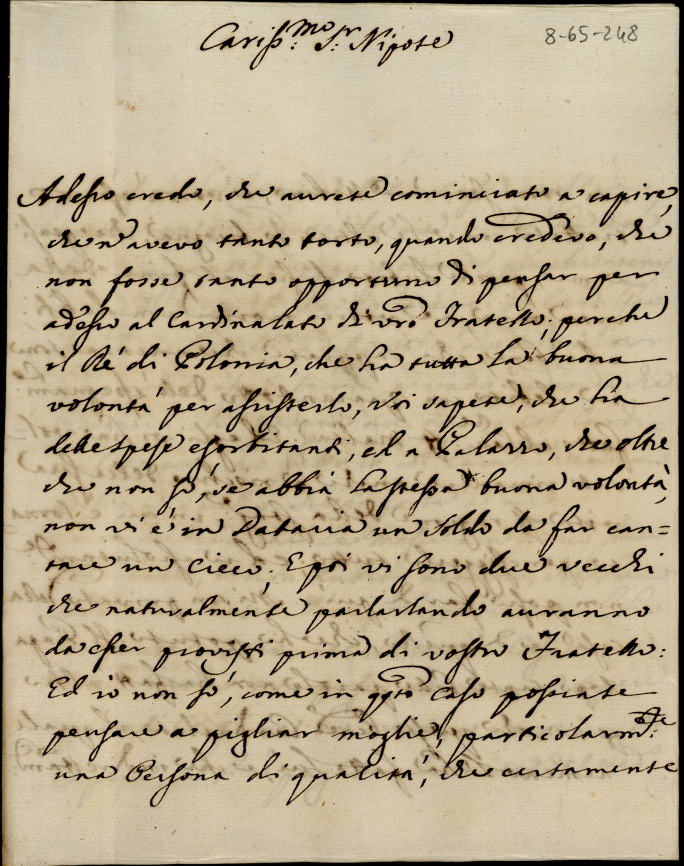 Cariss:mo Sr: Nipote
8-65-248
Adesso credo, che aurete cominciato a capire,
che nō avevo tanto torto, quando credevo, che
non fosse tanto opportuno di pensar per
adesso al Cardinalato di vrõ Fratello; perche
il Ré di Polonia, che ha tutta la buona
volontá per assisterlo, Voi sapete, che ha
delle spese esorbitanti, ed a Palazzo, che oltre
che non só, se abbia la stessa buona volontà,
non vi é in Dataria un soldo da far can=
tare un cieco; E poi vi sono due vecchi
che naturalmente parlando auranno
da esser provisti prima di vostro Fratello:
Ed io non só, come in qsto caso possiate
pensare a pigliar moglie, particolarm:te
una Persona di qualitá, che certamente